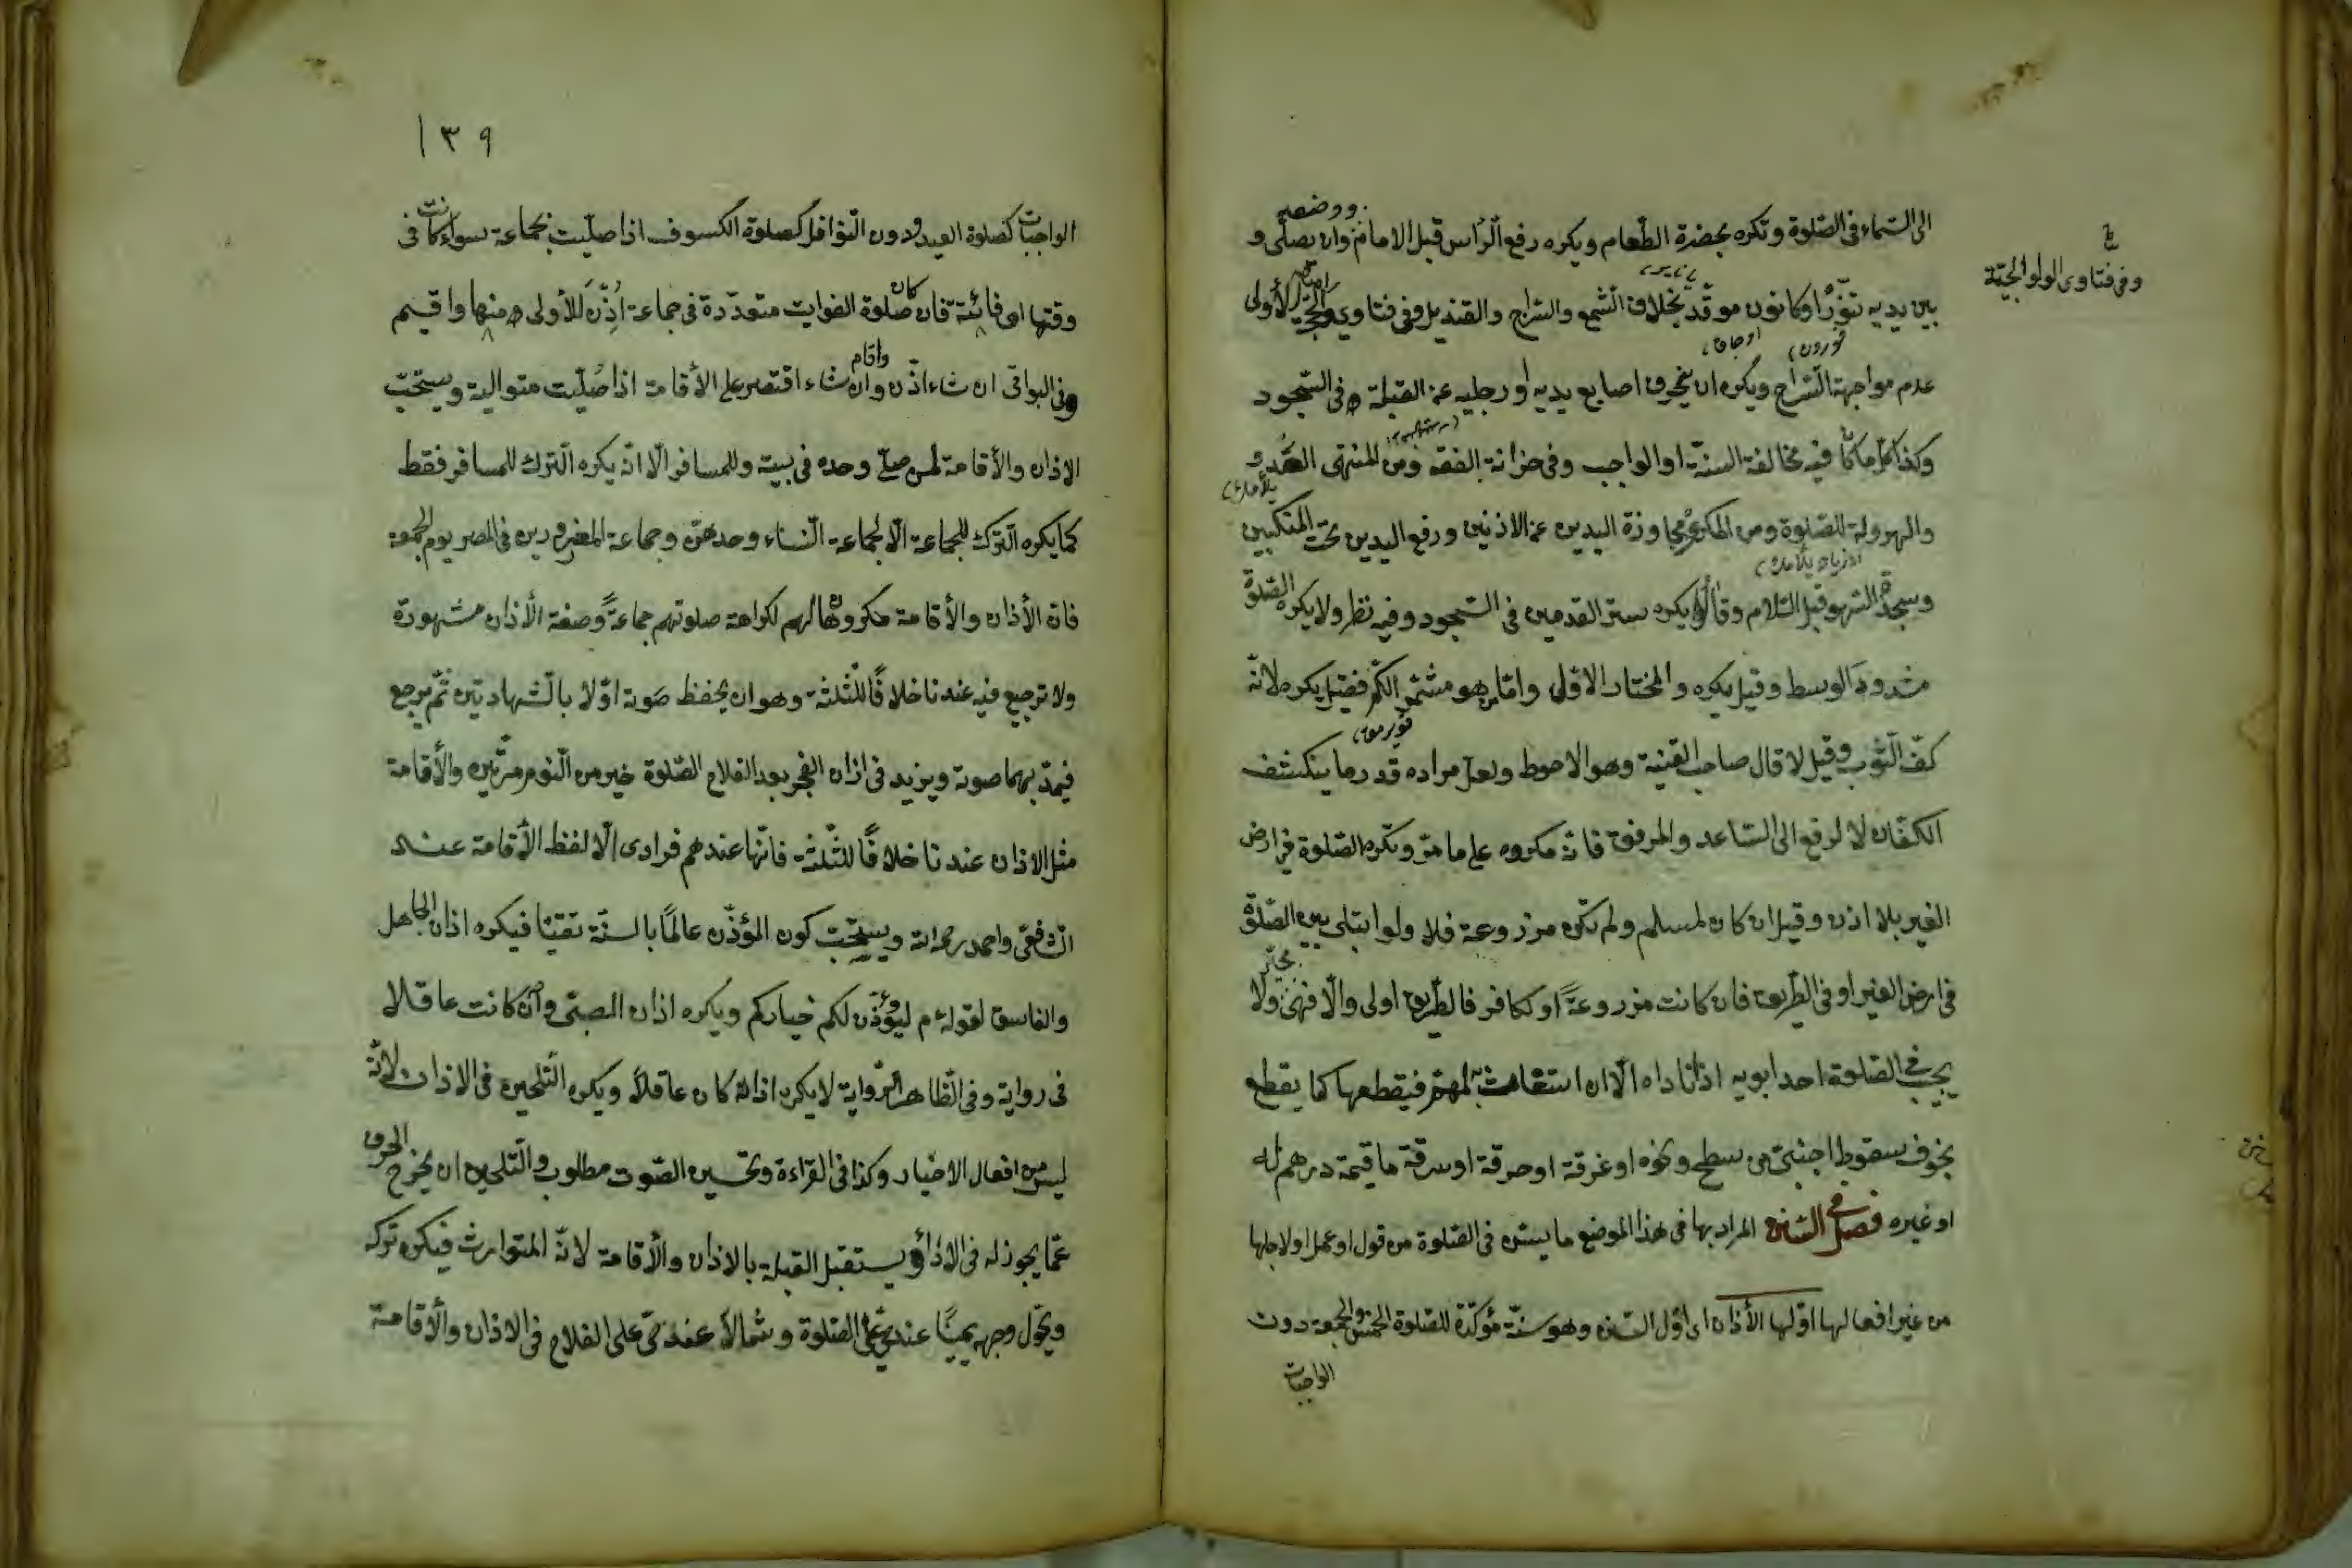 الى السماء فى الصّلوة وتكره بحضرة الطّعام ويكره رفع الرّاس قبل الامام ووضعه وان يصلّى و
بين يديه تنّورًا وكانون موقّد بخلاف الشّمع والسّراج والقنديل وفى فتاوى الأولى
وفى فتاوى الولوالجيّة
عدم مواجهة السّراج ويكره ان يحرف اصابع يديه او رجليه عن القبلة فى السّجود
وكذا كلّ ما كان فيه مخالفة السنّة او الواجب وفى خزانة الفقه ومن المنتهى العدّ و
والهرولة للصّلوة ومن المكروه مجاوزة اليدين عن الاذنين ورفع اليدين تحت المنكبين
وسجدة السّهو قبل السّلام وقالوا يكره ستر القدمين فى السّجود وفيه نظر ولا يكره الصّلوة
مشدود الوسط وقيل يكره والمختار الاوّل وامّا من هو مشمّر الكمّ فقيل يكره لانّه
كفّ الثّوب وقيل لا قال صاحب القنية وهو الاحوط ولعلّ مراده قدر ما ينكشف
الكفّان لا لو رفع الى السّاعد والمرفق فانّه مكروه على ما مرّ وتكره الصّلوة فى ارض
الغير بلا اذن وقيل ان كان لمسلم ولم تكن مزروعة فلا ولو ابتلى بين الصّلوة
فى ارض الغير او فى الطّريق فان كانت مزروعةً او لكافر فالطّريق اولى والّا فهى ولا
يجيب فى الصّلوة احد ابويه اذا ناداه الّا ان استغاث به لمهمّ فيقطعها كما يقطع
بخوف سقوط اجنبىّ من سطح ونحوه او غرقة او حرقة او سرقة ما قيمته درهم له
او غيره فصل فى السّنن المراد بها فى هذا الموضع ما يسنّ فى الصّلوة من قول او عمل او لاجلها
من غير افعالها اوّلها الأذان اى اوّل السّنن وهو سنّة مؤكّدة للصّلوة الخمس والجمعة دون
الواجبات
١٣٩
الواجبات كصلوة العيد ودون النّوافل كصلوة الكسوف اذا صلّيت بجماعة سواء كانت فى
وقتها او فائتة فان كان صلوة الفوايت متعدّدة فى جماعة اُذِّنَ للأولى منها واقيم
وفى البواقى ان شاء اذّن واقام وان شاء اقتصر على الأقامة اذا صُلّيت متوالية ويستحبّ
الاذان والأقامة لمن صلّى وحده فى بيته وللمسافر الّا انّه يكره التّرك للمسافر فقط
كما يكره التّرك للجماعة الّا لجماعة النّساء وحدهنّ وجماعة المعذورين فى المصر يوم الجمعة
فانّ الأذان والأقامة مكروهان لهم لكراهة صلوتهم جماعةً وصفة الأذان مشهورة
ولا ترجيع فيه عندنا خلافًا للثّلثة وهو ان يخفظ صوته اوّلا بالشّهادتين ثمّ يرجع
فيمدّ بهما صوته ويزيد فى اذان الفجر بعد الفلاح الصّلوة خير من النّوم مرّتين والأقامة
مثل الاذان عندنا خلافًا للثّلثة فانّها عندهم فرادى الّا لفظ الأقامة عند
الشّافعىّ واحمد رحمه الله ويستحبّ كون المؤذّن عالمًا بالسنّة تقيّا فيكره اذان الجاهل
والفاسق لقوله عم ليؤذّن لكم خياركم ويكره اذان الصبىّ وان كانت عاقلا
فى رواية وفى الظّاهر الرّواية لا يكره اذانه كان عاقلًا ويكره التّلحين فى الاذان لانّه
ليس من افعال الاخيار وكذا فى القراءة وتحسين الصّوت مطلوب والتّلحين ان يخرج الحرف
عمّا يجوز له فى الاداء ويستقبل القبلة بالاذان والأقامة لانّه المتوارث فيكره تركه
ويحوّل وجهه يمينًا عند حىّ على الصّلوة وشمالًا عند حىّ على الفلاح فى الاذان والأقامة